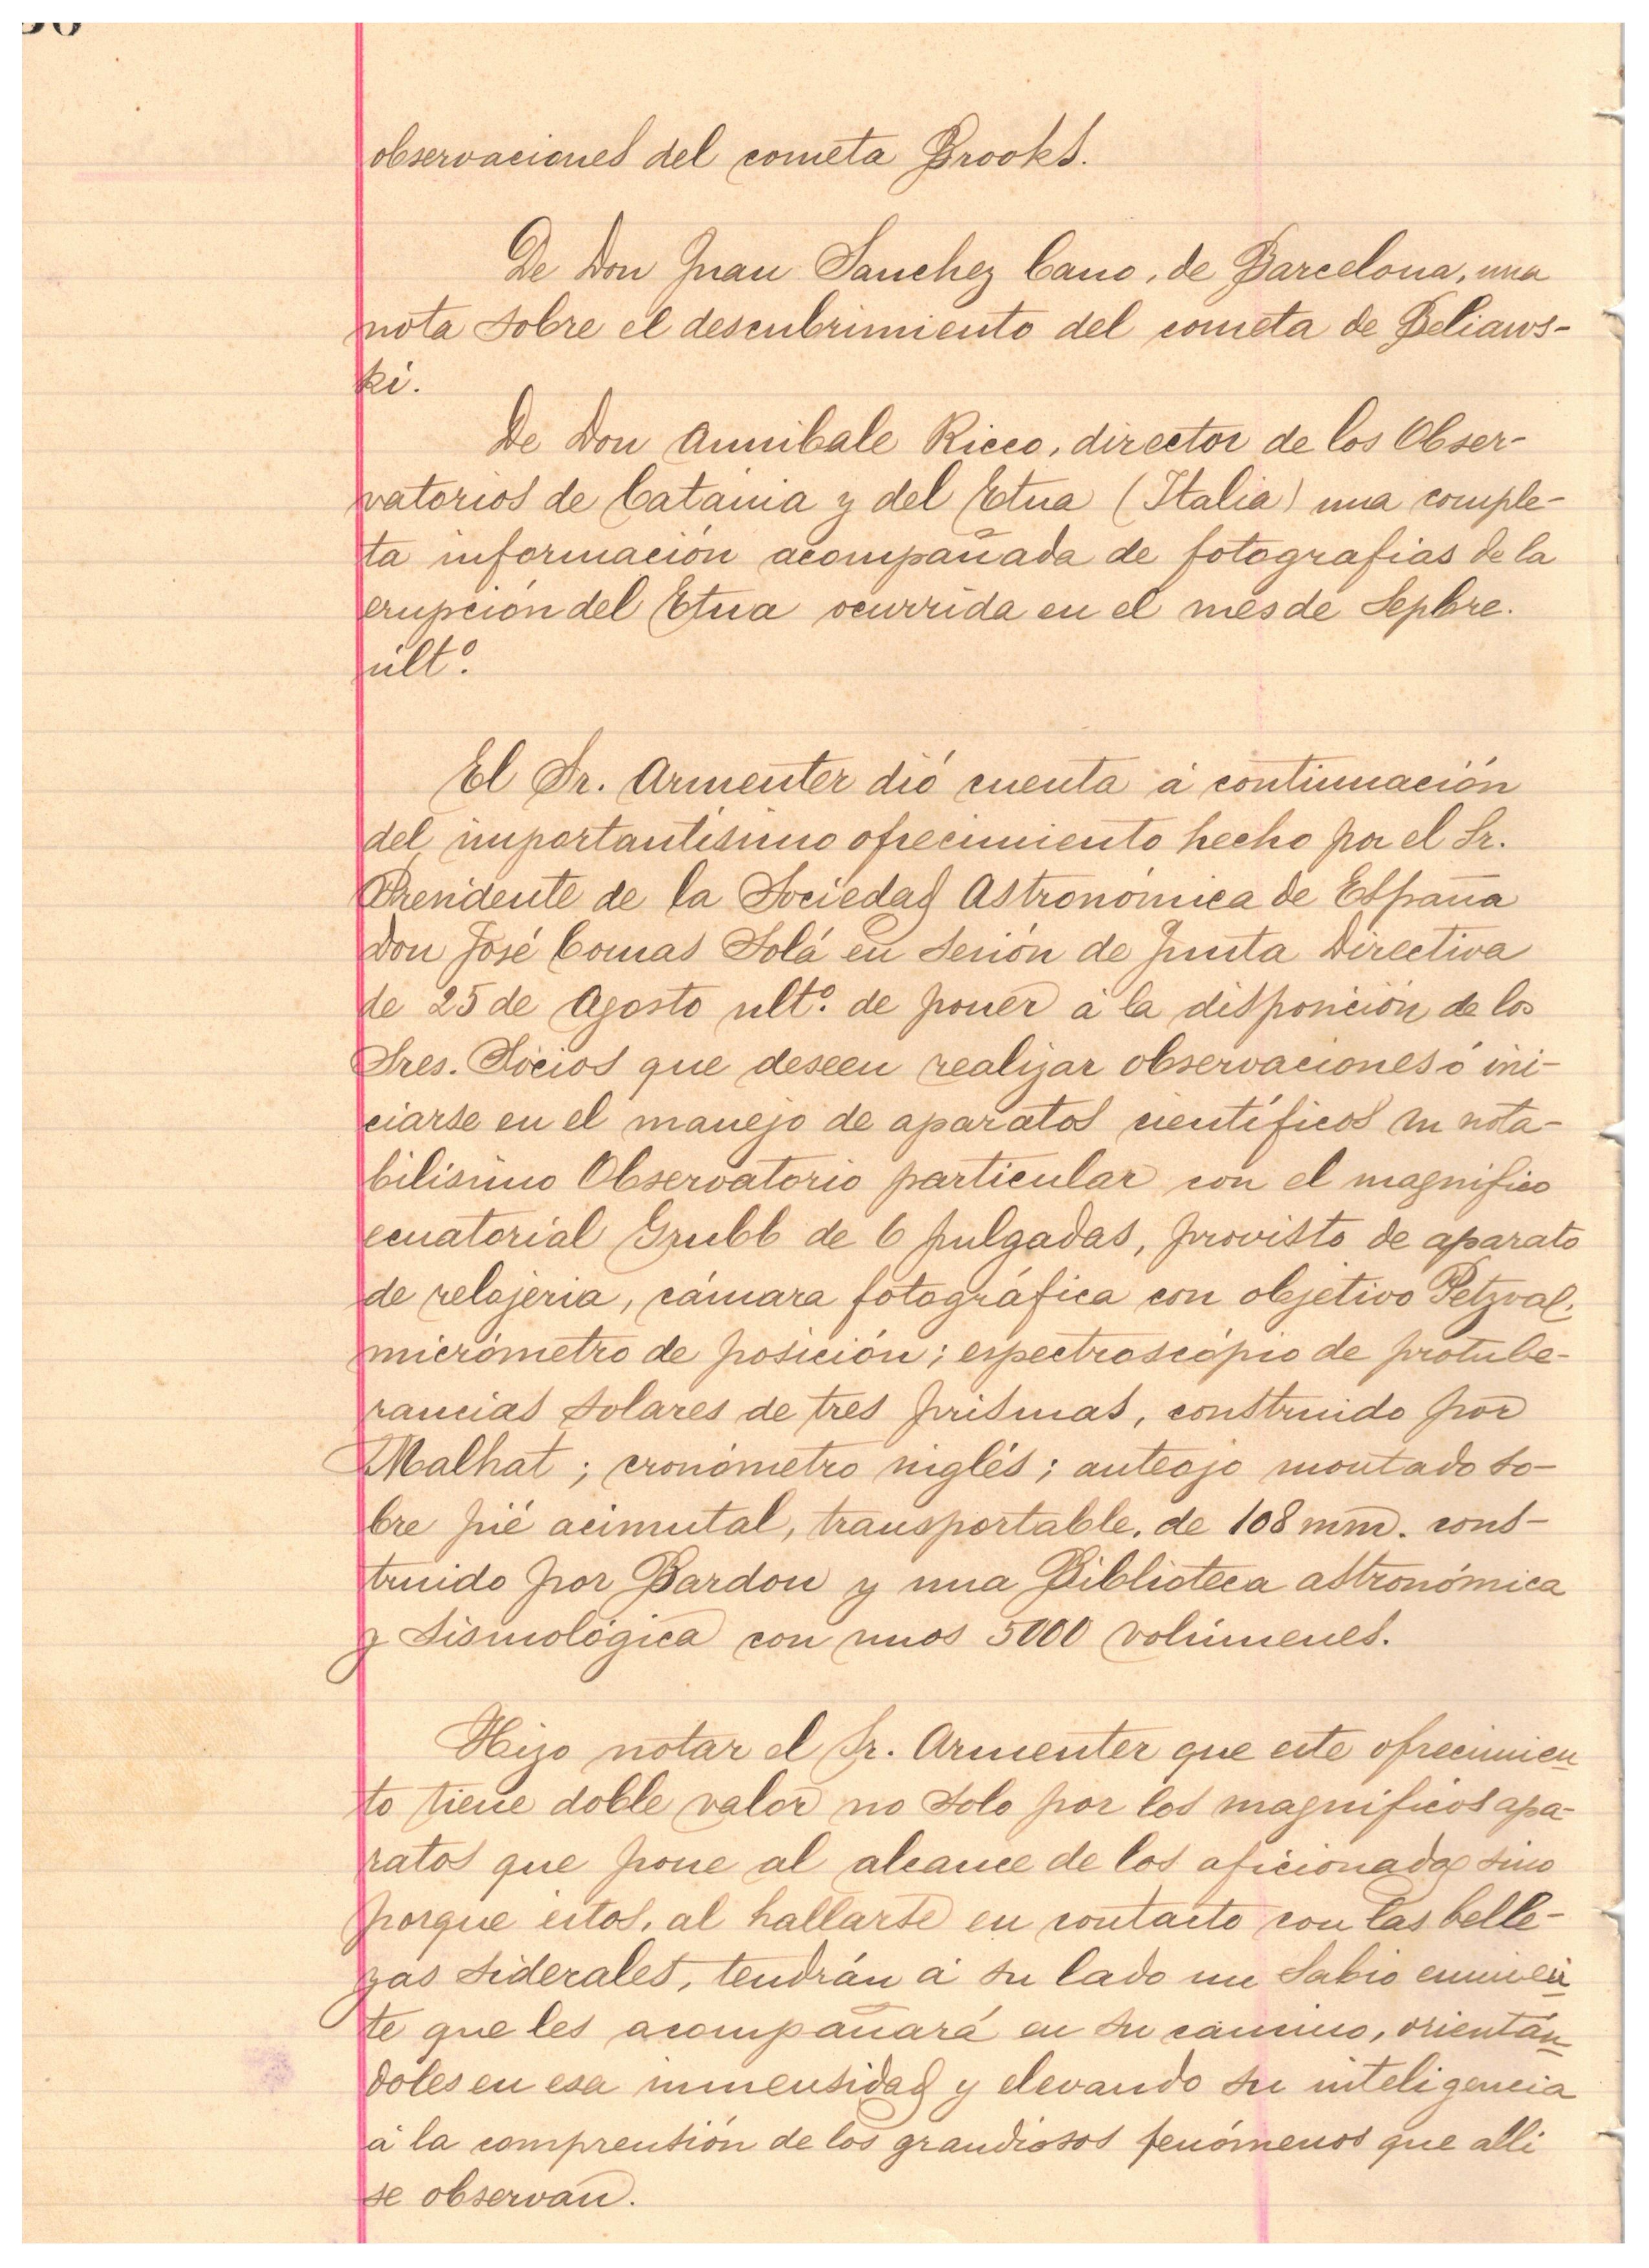 observaciones del cometa Brooks.
De Don Juan Sanchez Cano, de Barcelona, una
nota sobre el descubrimiento del cometa de Beliaws-
ki.
De Don Annibale Ricco, director de los Obser-
vatorios de Catania y del Etna (Italia) una comple-
ta información acompañada de fotografias de la
erupción del Etna ocurrida en el mes de Sepbre.
últº.
El Sr. Armenter dió cuenta á continuación
del importantísimo ofrecimiento hecho por el Sr.
Presidente de la Sociedad Astronómica de España
Don José Comas Solá en sesión de Junta Directiva
de 25 de Agosto ultº. de poner á la disposición de los
Sres. Socios que deseen realizar observaciones ó ini-
ciarse en el manejo de aparatos científicos su nota-
bilísimo Observatorio particular con el magnífico
ecuatorial Grubb de 6 pulgadas, provisto de aparato
de relojeria, cámara fotográfica con objetivo Petzval;
micrómetro de posición; espectroscópio de protube-
rancias solares de tres prismas, construido por
Malhat; cronómetro inglés; anteojo montado so-
bre pié acimutal, transportable, de 108 mm. cons-
truido por Bardou y una Biblioteca astronómica
y sismológica con unos 5000 volúmenes.
Hizo notar el Sr. Armenter que este ofrecimien
to tiene doble valor no solo por los magníficos apa-
ratos que pone al alcance de los aficionados sino
porque éstos, al hallarse en contacto con las belle-
zas siderales, tendrán á su lado un sabio eminen
te que les acompañará en su camino, orientán
doles en esa inmensidad y elevando su inteligencia
á la comprensión de los grandiosos fenómenos que alli
se observan.